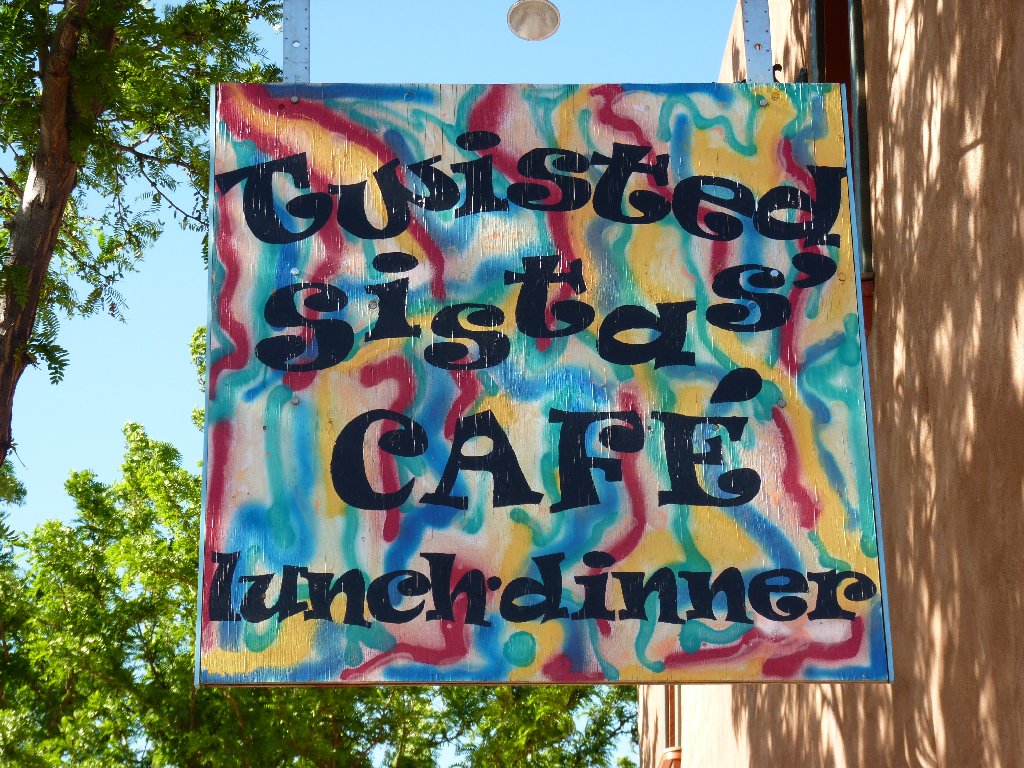 Twisted
Sistas'
CAFÉ
lunch·dinner